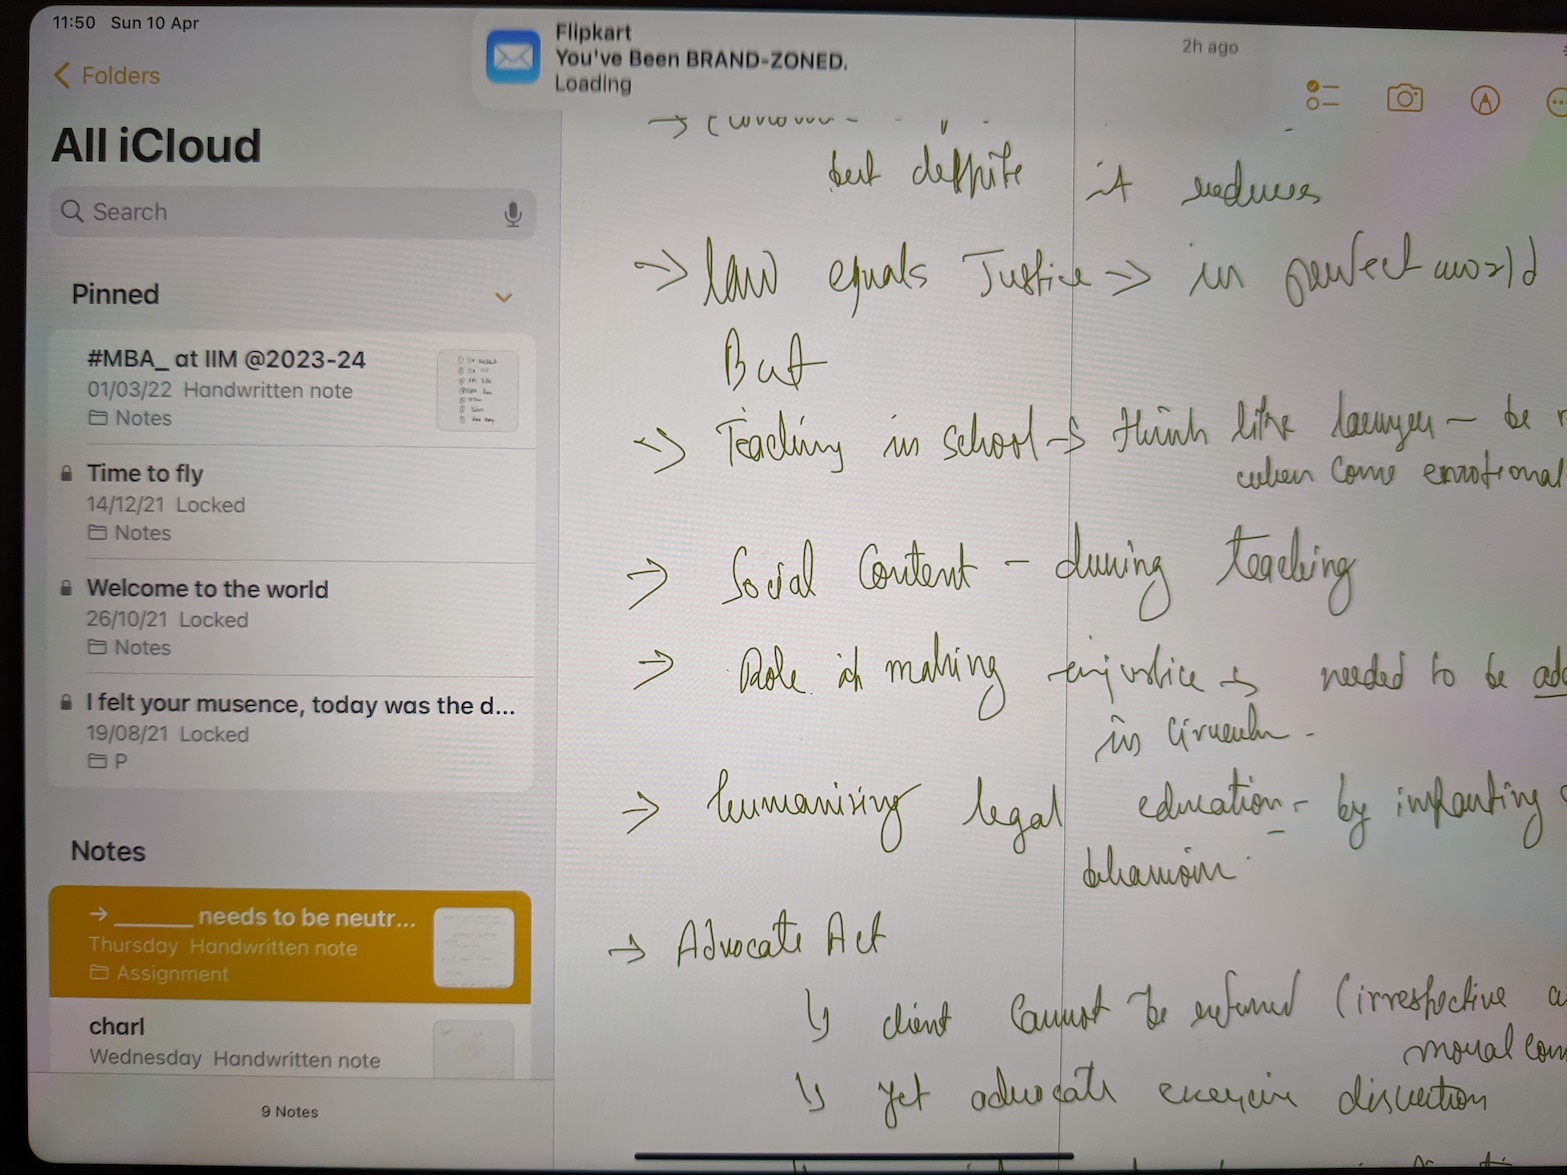 11:50 Sun 10 Apr
Flipkart
You've Been BRAND-ZONED.
Loading
2h ago
Folders
All iCloud
Search
Pinned
#MBA_ at IIM @2023-24
01/03/22 Handwritten note
Notes
Time to fly
14/12/21 Locked
Notes
Welcome to the world
26/10/21 Locked
Notes
I felt your musence, today was the d...
19/08/21 Locked
P
Notes
→ ______ needs to be neutr...
Thursday Handwritten note
Assignment
charl
Wednesday Handwritten note
9 Notes
but despite it reduces
→ law equals Justice → in perfect world
But
→ Teaching in school → think like lawyer - be
when come emotional
→ Social Content - during teaching
→ Role of making injustice → needed to be
in
→ humanising legal education - by imparting
behaviour
→ Advocate Act
↳ client cannot be refused (irrespective
moral
↳ yet advocate exercise discretion